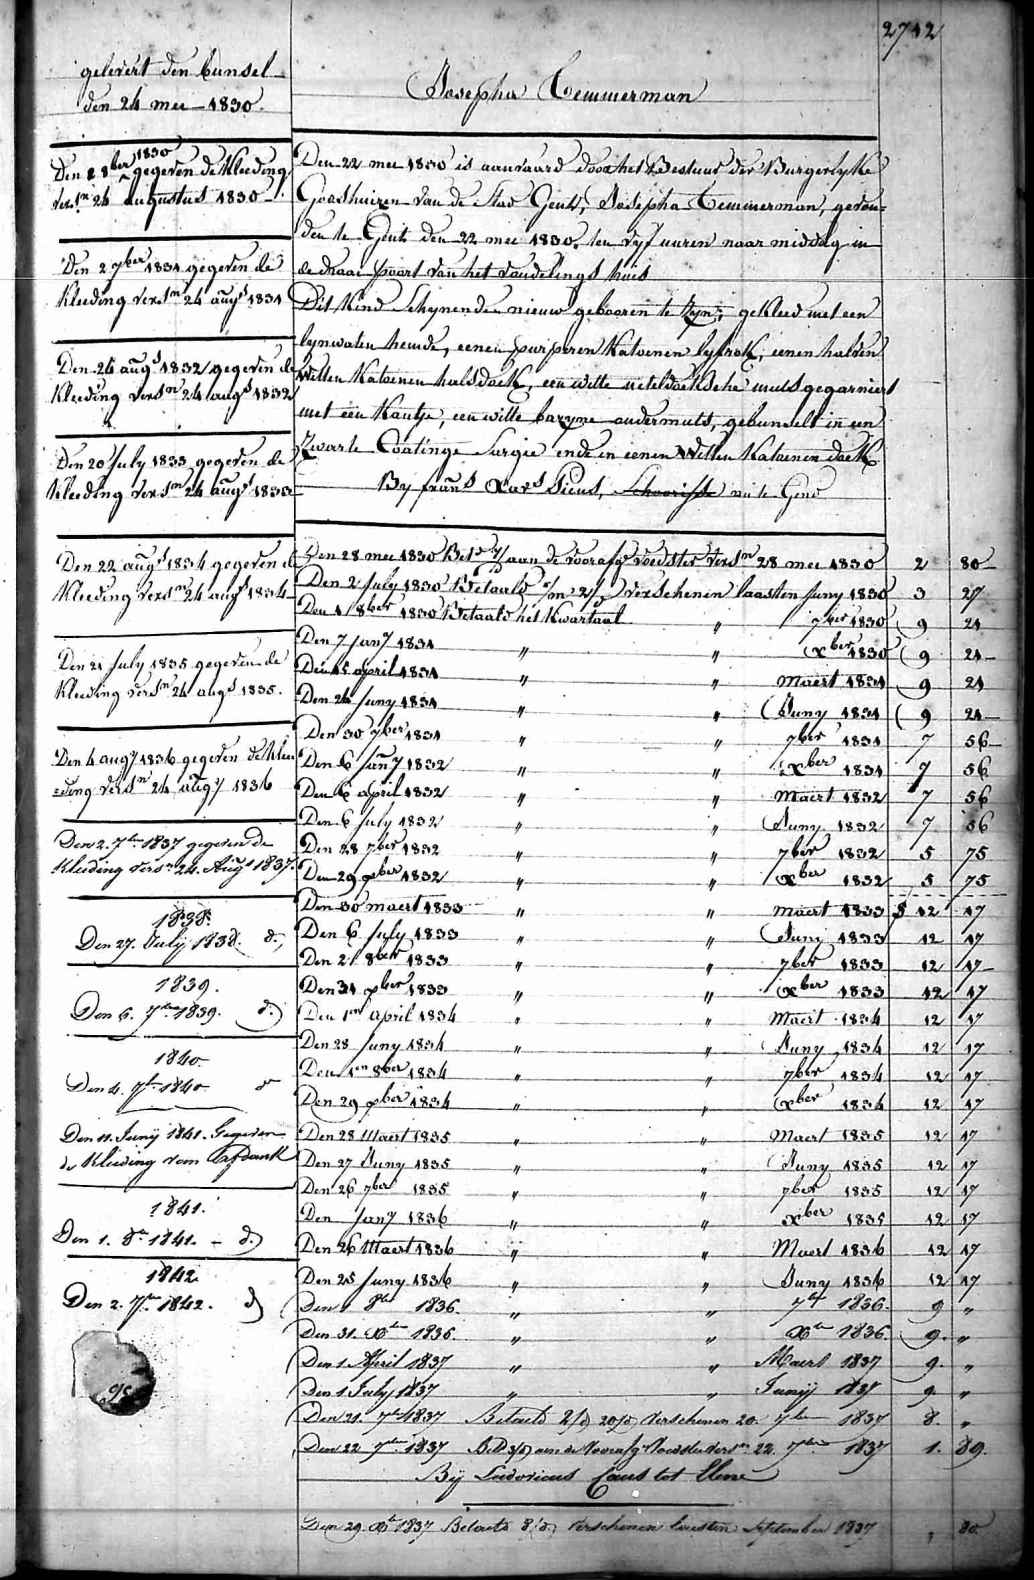 2742
gelevert den bunsel
den 24 mei 1830.
Josepha Temmerman
Den 2 8ber 1830 gegeven de kleeding
vers.n 24 augustus 1830
Den 2 7ber 1831 gegeven de
kleeding versn 24 augs 1831
Den 25 augs 1832 gegeven de
kleeding versn 24 augs 1832
Den 20 July 1833 gegeven de
kleeding versn 24 augs 1833
Den 22 augs 1834 gegeven de
kleeding versn 24 augs 1834
Den 21 July 1835 gegeven de
kleeding versn 24 augs 1835.
Den 4 augs 1836 gegeven de klee
=ding versn 24 augs 1836
Den 2. 7ber 1837 gegeven de
kleeding versn 24. Augs 1837.
1838.
Den 27. July 1838. d.
1839.
Den 6. 7ber 1839. d.
1840.
Den 4. 7ber 1840 d
Den 11. Junij 1841. Gegeven
de kleeding van Afdank
1841.
Den 1. 8er 1841. - d.
1842.
Den 2. 7ber 1842. d
Den 22 mei 1830 is aanvaard door het Bestuur der Burgerlyke
Godshuizen van de Stad Gent, Josepha Temmerman, gevon=
den te Gent den 22 mei 1830, ten vyf uuren naar middag in
de draai poort van het vondelings huis
Dit kind schynende nieuw gebooren te zyn, gekleed met een
lynwaten hemde, eenen purperen katoenen lyfrok, eenen halven
witten katoenen halsdoek, een witte neteldoeksche muts gegarniert
met een kantje, een witte bazyne ondermuts, gebunselt in een
zwarte Coatinge sargie ende in eenen witten katoenen doek
By frans Xavs Pieus, te Gend
Den 28 mei 1830 Bet aan de voorafg voedster versn 28 mei 1830 2 80
Den 2 July 1830 Betaald verschenen laasten Juny 1830 3 27
Den 1 8ber 1830 Betaald het kwartaal " 7ber 1830 9 24
Den 7 Jany 1831 " " xber 1830 9 24
Den 15 april 1831 " " Maert 1831 9 24
Den 24 Juny 1831 " " Juny 1831 9 24
Den 30 7ber 1831 " " 7ber 1831 7 56
Den 6 Jany 1832 " " xber 1831 7 56
Den 6 april 1832 " " Maert 1832 7 56
Den 6 July 1832 " " Juny 1832 7 56
Den 28 7ber 1832 " " 7ber 1832 5 75
Den 29 xber 1832 " " xber 1832 5 75
Den 30 maert 1833 " " Maert 1833 12 17
Den 6 July 1833 " " Juny 1833 12 17
Den 2 8ber 1833 " " 7ber 1833 12 17
Den 31 xber 1833 " " xber 1833 12 17
Den 1en April 1834 " " Maert 1834 12 17
Den 28 Juny 1834 " " Juny 1834 12 17
Den 1en 8ber 1834 " " 7ber 1834 12 17
Den 29 xber 1834 " " xber 1834 12 17
Den 28 Maert 1835 " " Maert 1835 12 17
Den 27 Juny 1835 " " Juny 1835 12 17
Den 26 7ber 1835 " " 7ber 1835 12 17
Den Jany 1836 " " xber 1835 12 17
Den 26 Maert 1836 " " Maert 1836 12 17
Den 25 Juny 1836 " " Juny 1836 12 17
Den 1 8ber 1836. " " 7ber 1836. 9 "
Den 31. Xber 1836. " " Xber 1836. 9. "
Den 1. April 1837 " " Maert 1837 9. "
Den 1 July 1837 " " Junij 1837 9. "
Den 21. 7ber 1837 Betaeld verschenen 20. 7ber 1837 8. "
Den 22 7ber 1837 Betd aen de voorafg voedster versn 22. 7ber 1837 1. 89.
Bij Ludovicus Caus tot Elene
Den 29 Xber 1837 Betaeld verschenen laesten September 1837 , 80